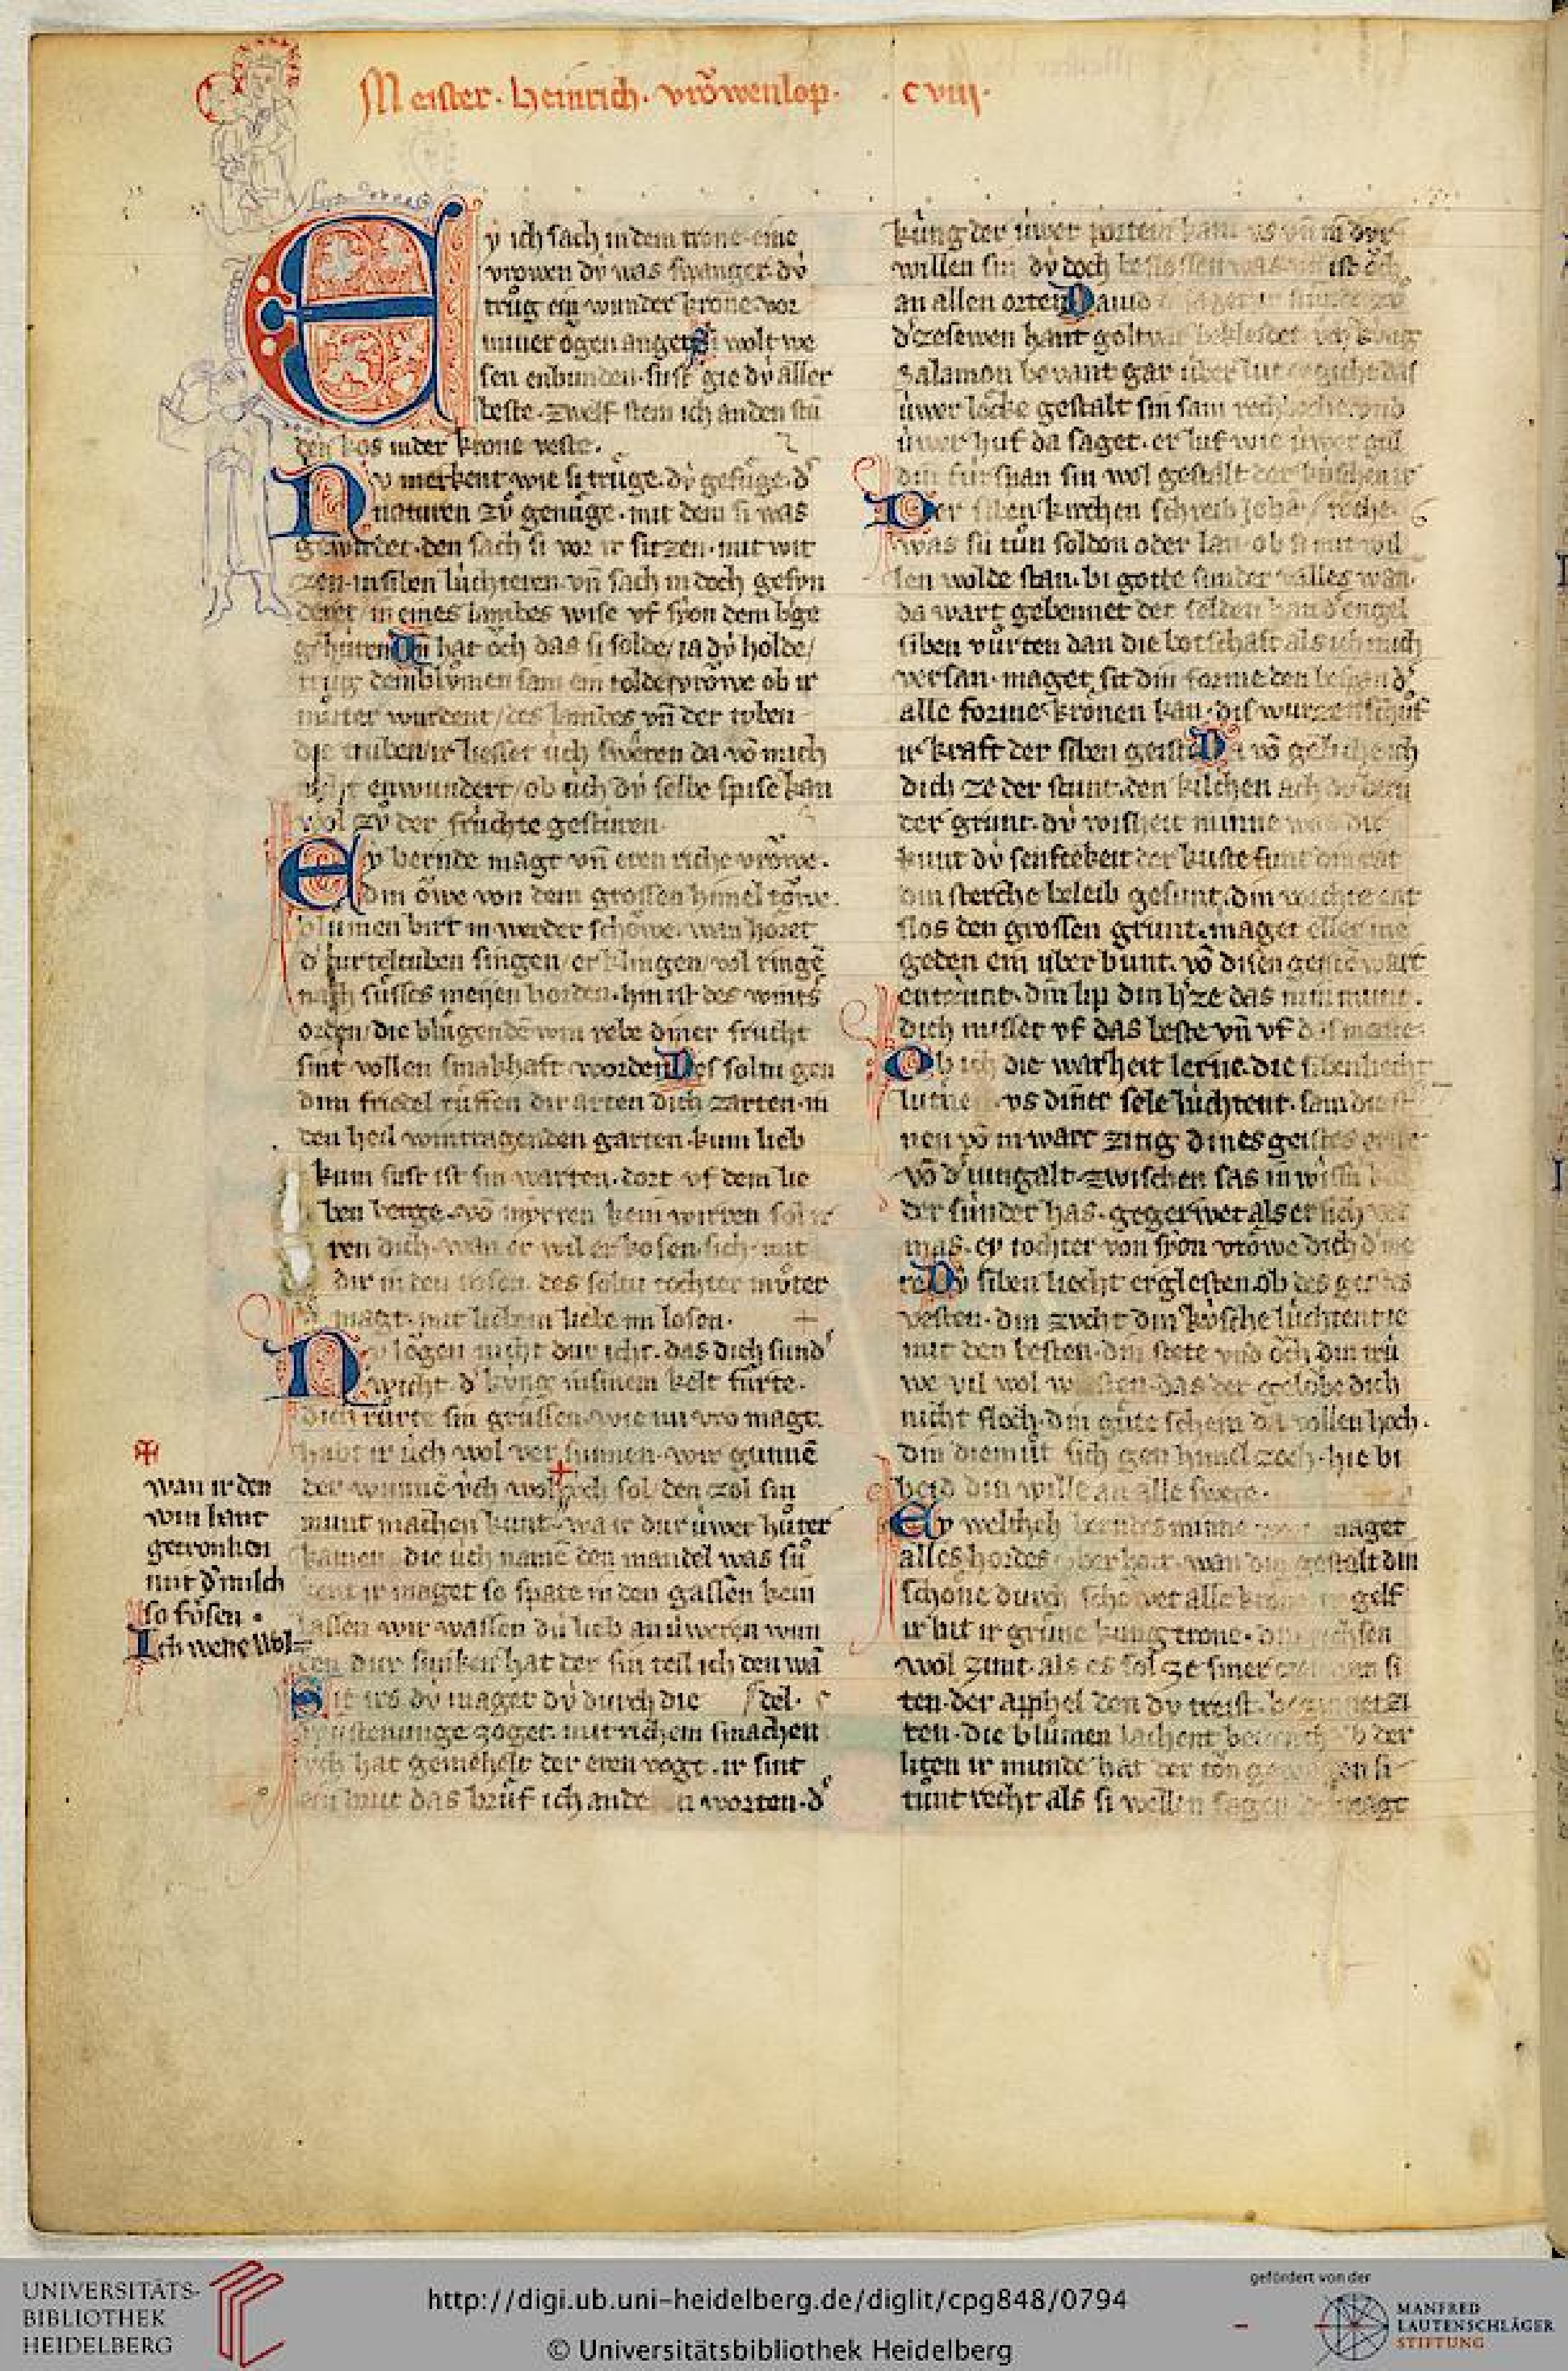 Meister. heinrich. vrŏwenlop. .cviij.
Ey ich sach in dem trone eine
vrowen dv́ was swanger dv́
trůg ein wunder krone vor
miner ŏgen ange Si wolt we
sen enbunden. sust gie dv́ aller
beste. zwelf stein ich an den stū
den kos in der krone veste.
Nv merkent wie si trůge. dv́ gefůge. d̕
naturen zů genůge. mit dem si was
gewúrdet. den sach si vor ir sitzen. mit wit
zen. in siben lúchteren vn̄ sach in doch gesvn
dert / in eines lambes wise vf syon dem b̕ge
gehúren Vn̄ hat ŏch das si solde / ia dv́ holde /
trůg den blůmen sam ein tolde vrŏwe ob ir
můter wurdent / des lambes vn̄ der tvben
die truben / ir liesset úch sweren da vō mich
nicht enwundert / ob úch dv́ selbe spise kan
wol zů der frúchte gestúren.
Ey bernde magt vn̄ eren riche vrŏwe.
din ŏwe von dem grossen himel tŏwe.
blůmen birt in werder schŏwe. wan hŏret
d̕ turteltuben singen / erklingen / vol ringē
nach sůsses meyen horden. hin ist des wint̕s
orden / die blůgenden win rebe diner frucht
sint vollen smakhaft worden Des soltu gen
dim friedel růffen dir arten dich zarten. in
den heil wintragenden garten. kum lieb
kum sust ist sin warten. dort vf dem lie
ben berge. vō mirren kein wirren sol ir
ren dich. wan er wil erkosen. sich mit
dir in den rosen. des soltu tochter můter
magt. mit lieben liebe im losen.
Nv lŏgen nicht dur icht. das dich sund̕
wicht. d̕ kúng in sinem kelr fůrte.
dich růrte sin grůssen. wie nu vro magt.
habt ir úch wol versunnen. wir gunnē
der wunne úch wol + ich sol den zol sin
munt machen kunt. wa ir dur úwer hůter
kamen die úch namē den mandel was sů
chent ir maget so spate in den gassen kein
lassen wir wassen du lieb an úweren wan
gen dur sinken hat der sin teil ich den wā
Sit irs dv́ maget dv́ durch die / del.
wůstenunge zoget. mit richem smachen
úch hat gemehelt der eren vogt. ir sint
ein brut das brůf ich an den worten. d̕
wan ir den
win hant
getronken
mit d̕ milch
so fŏsen.
Ich wene wol
kúng der úwer portein kam us vn̄ in dur
willen sin dv́ doch beslossen was ist ŏch
an allen orten Dauid
d̕ zesewen hant goltvar bekleidet úch kúng
Salamon bevant gar úber lut er gicht das
úwer lŏcke gestalt sin sam
úwer huf da saget. er luf wie úwer gúl
din fúrspan sin wol gestalt der húschen ir
Der siben kirchen schreib johā / roche.
was sú tůn soldon oder lan. ob si mit wil
len wolde stan. bi gotte sunder valles wan.
da wart gebennet der selden ban d̕ engel
siben vůrten dan die botschaft als ich mich
versan. maget sit din forme den
alle forme krŏnen kan. dis wurzen schůf
ir kraft der siben geiste Da vō geliche ich
dich ze der stunt. den kilchen ach
der grunt. dv́ wisheit minne was dir
kunt dv́ senftekeit der kúste funt din rat
din sterche beleib gesunt. din vorchte ent
slos den grossen grunt. maget elles me
geden ein úber bunt. vō disen geistē wart
entzunt. din lip din h̕ze das min munt.
dich misset vf das beste vn̄ vf das meiste
Ob ich die warheit lerne. die siben liecht
lucerne vs diner sele lúchtent. sam die st̕
nen vō in wart zitig dines geistes erne
vō d̕ iung alt. zwischen sas in
der sunder has. gegerwet als er sich
mas. ey tochter von syon vrŏwe dich d̕ me
re Dv́ siben liecht erglesten. ob des geistes
vesten. din zucht din kúsche lúchtent ie
mit den besten. din stete vnd ŏch din trú
we vil wol westen. das der gelobe dich
nicht floch. din gůte schein da vollen hoch.
din diemůt sich gen himel zoch. hie bi
beid din wille an alle swere.
Ey welich berndes minne maget
alles hordes úber hort. wan din gestalt din
schŏne durch schŏwet alle krone gelf
ir hút ir grůne kúnig trone. din
wol zimt. als es sol ze siner si
ten. der apphel den dv́ treist. zi
ten. die blůmen lachent der
liten ir munde hat der tŏn si
tůnt recht als si wellen sagen maget
UNIVERSITÄTS-
BIBLIOTHEK
HEIDELBERG
http://digi.ub.uni-heidelberg.de/diglit/cpg848/0794
© Universitätsbibliothek Heidelberg
gefördert von der
MANFRED
LAUTENSCHLÄGER
STIFTUNG